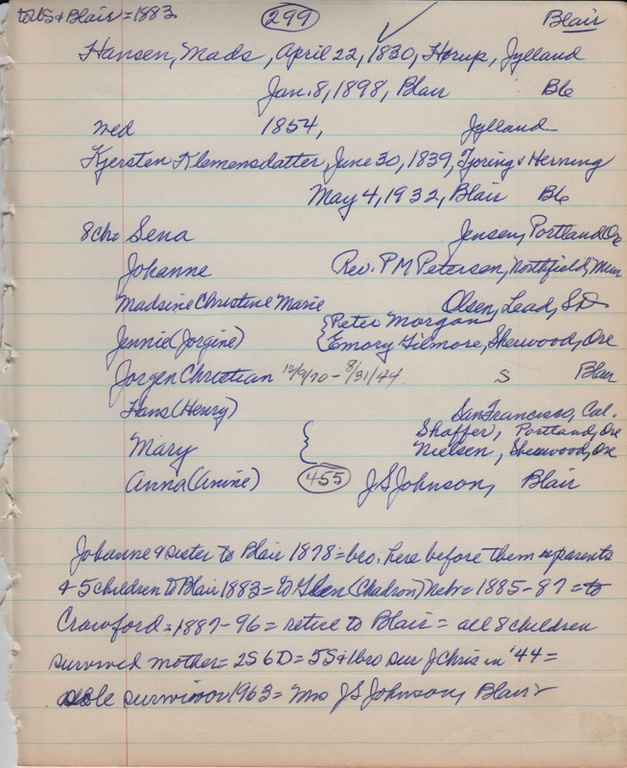 to US & Blair = 1883 299 Blair
Hansen, Mads, April 22, 1830, Horup, Jylland
Jan. 8, 1898, Blair B6
wed 1854, Jylland
Kjersten Klemensdatter, June 30, 1839, Tjoring & Herning
May 4, 1932, Blair B6
8ch= Sena Jensen, Portland Ore
Johanne Rev. P M Petersen, Northfield, Minn
Madsine Christine Marie Olsen, Lead, S D
Peter Morgan
Jennie (Jorgine) Emory Gilmore, Sherwood, Ore
Jorgen Christian 12/9/70 - 8/31/44 S Blair
Hans (Henry) San Francisco, Cal.
Shaffer, Portland, Ore
Mary Nielsen, Sherwood, Ore
Anna (Anine) 455 J S Johnson, Blair
Johanne & sister to Blair 1878 = bro. here before them = parents
& 5 children to Blair 1883 = to Glen (Chadron) Nebr = 1885-87 = to
Crawford = 1887-96 = retire to Blair = all 8 children
survived mother = 2S 6D = 5S & 1bro sur J Chris in '44 =
sole survivor 1963 = Mrs J S Johnson, Blair